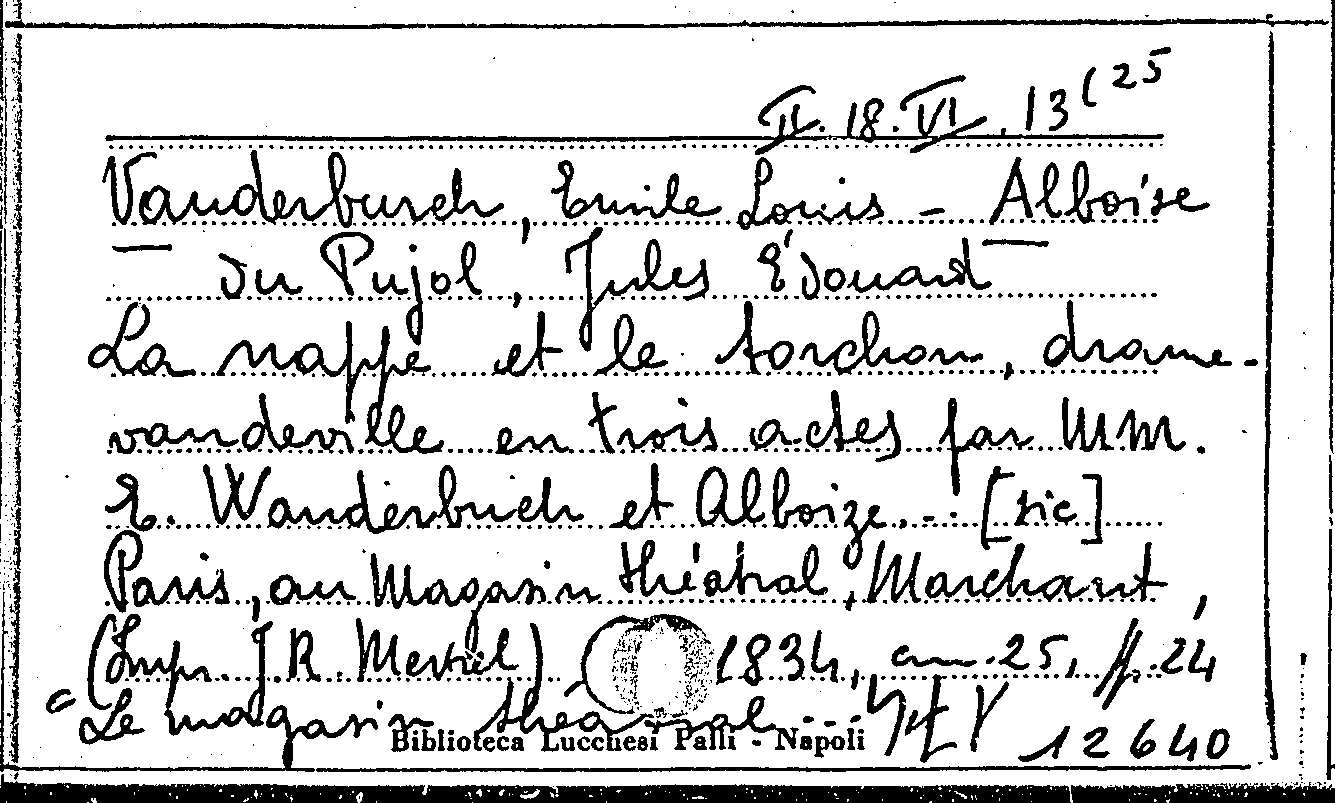 II. 18. VI. 13(25
Vanderburch, Emile Louis - Alboise
du Pujol, Jules Édouard
La nappe et le torchon, drame-
vaudeville en trois actes par MM.
E. Wanderburch et Alboize... [sic]
Paris, au Magasin théâtral, Marchant,
(Impr. J. R. Mevrel) 1834, cm. 25, pp. 24
"Le magasin théatral..."
Biblioteca Lucchesi Palli - Napoli
12640